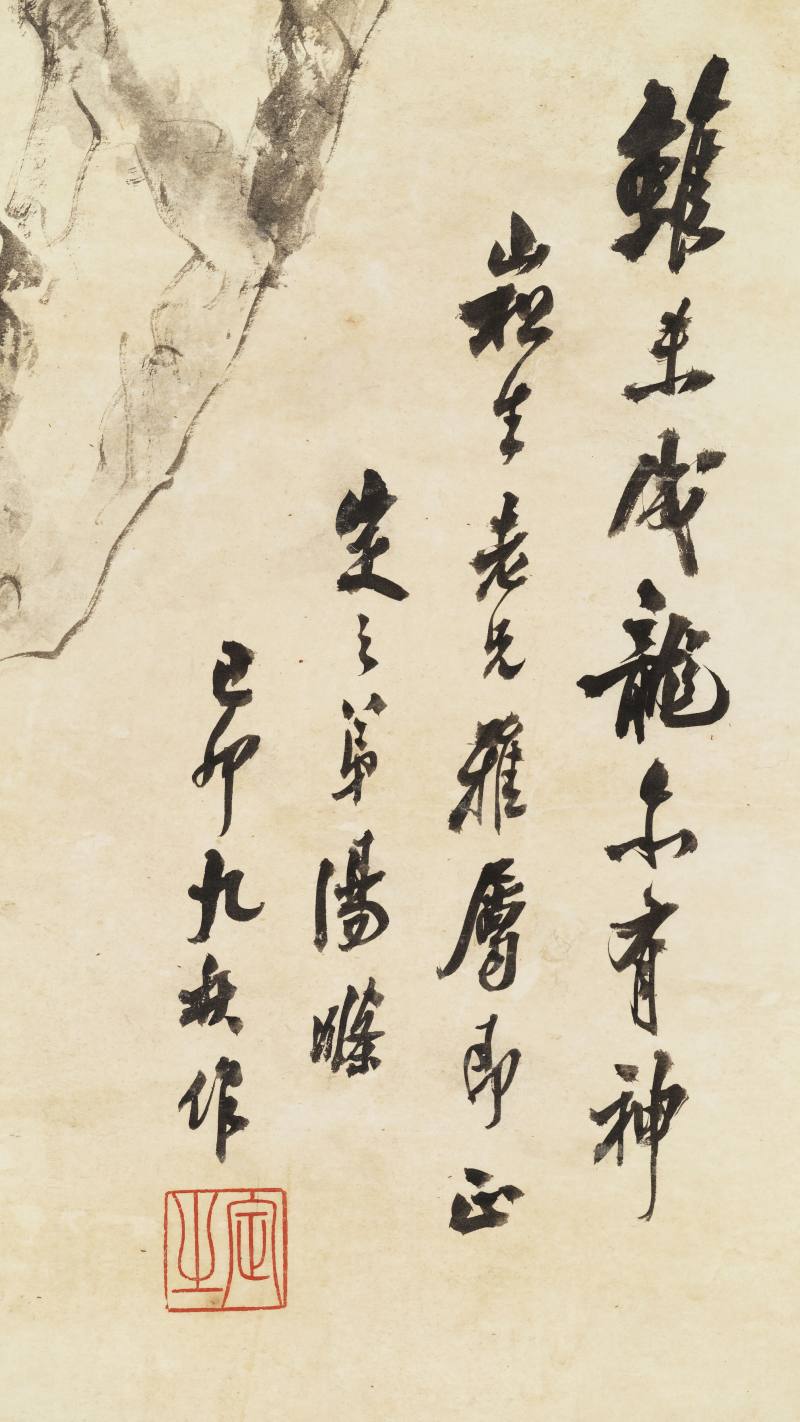 雖未成龍亦有神
崧生老兄雅屬即正
定之弟湯滌
己卯九秋作
定之